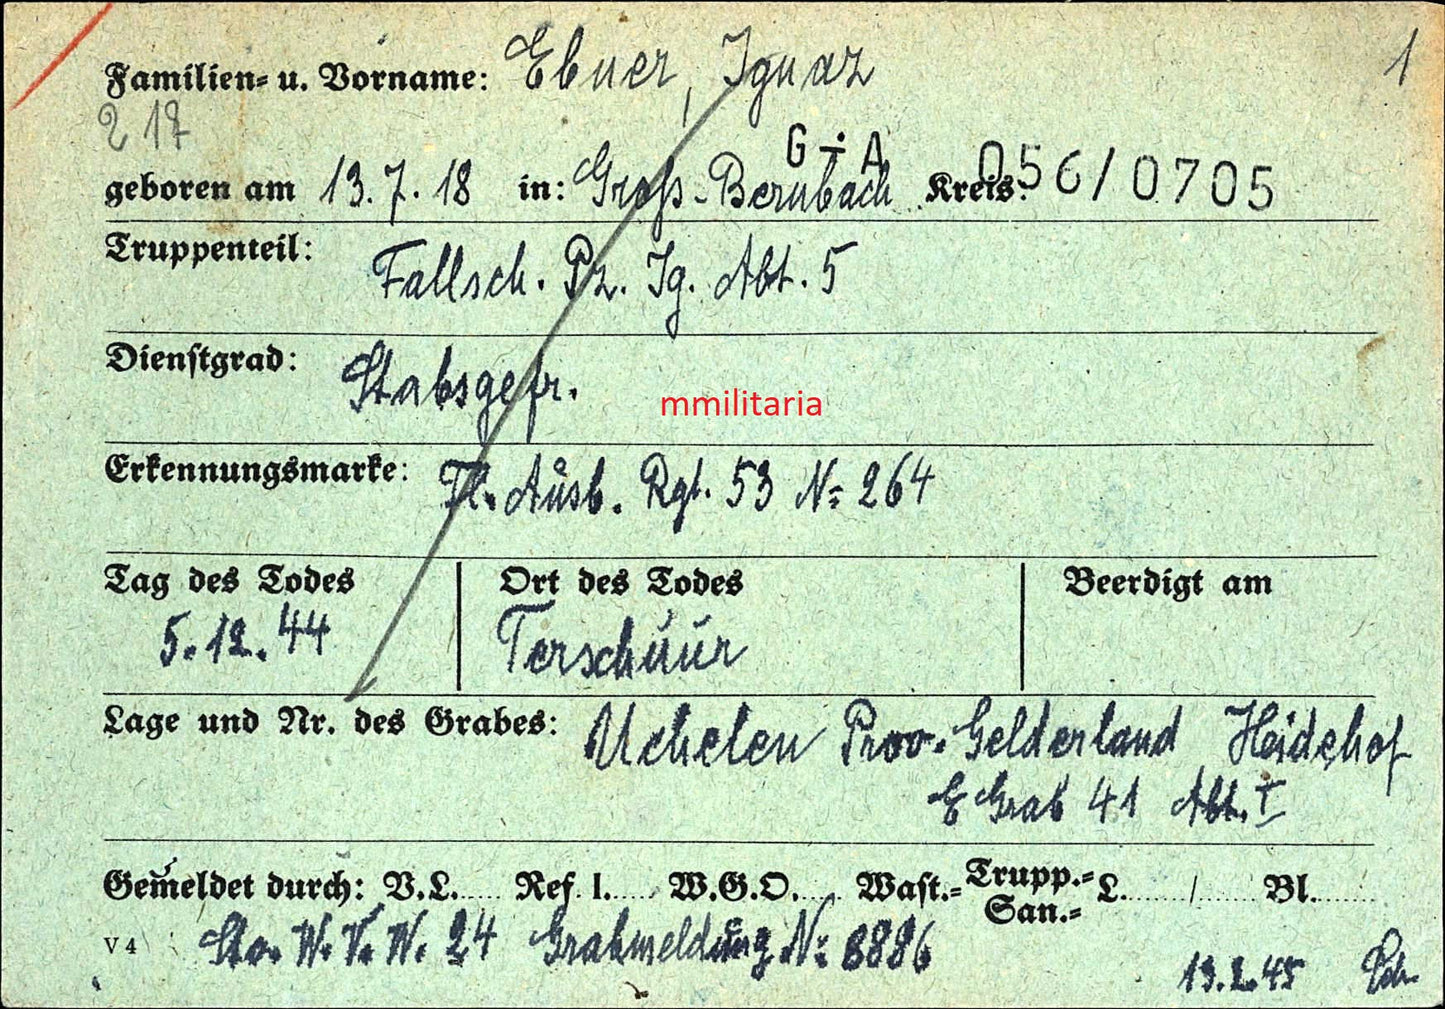 1
Familien- u. Vorname: Ebner, Ignaz
217
G ÷ A
geboren am 13.7.18 in: Groß-Bernbach Kreis: 056/0705
Truppenteil: Fallsch. Pz. Jg. Abt. 5
Dienstgrad: Stabsgefr.
mmilitaria
Erkennungsmarke: Fl. Ausb. Rgt. 53 N= 264
Tag des Todes Ort des Todes Beerdigt am
5.12.44 Terschuur
Lage und Nr. des Grabes: Uchelen Prov. Gelderland Heidehof
E Grab 41 Abt. I
Gemeldet durch: V.L. Ref I. W.G.O. Wast.- Trupp.- San.- L. / Bl.
V 4 Sta. W. V. W. 24 Grabmeldung N= 8886
13.2.45